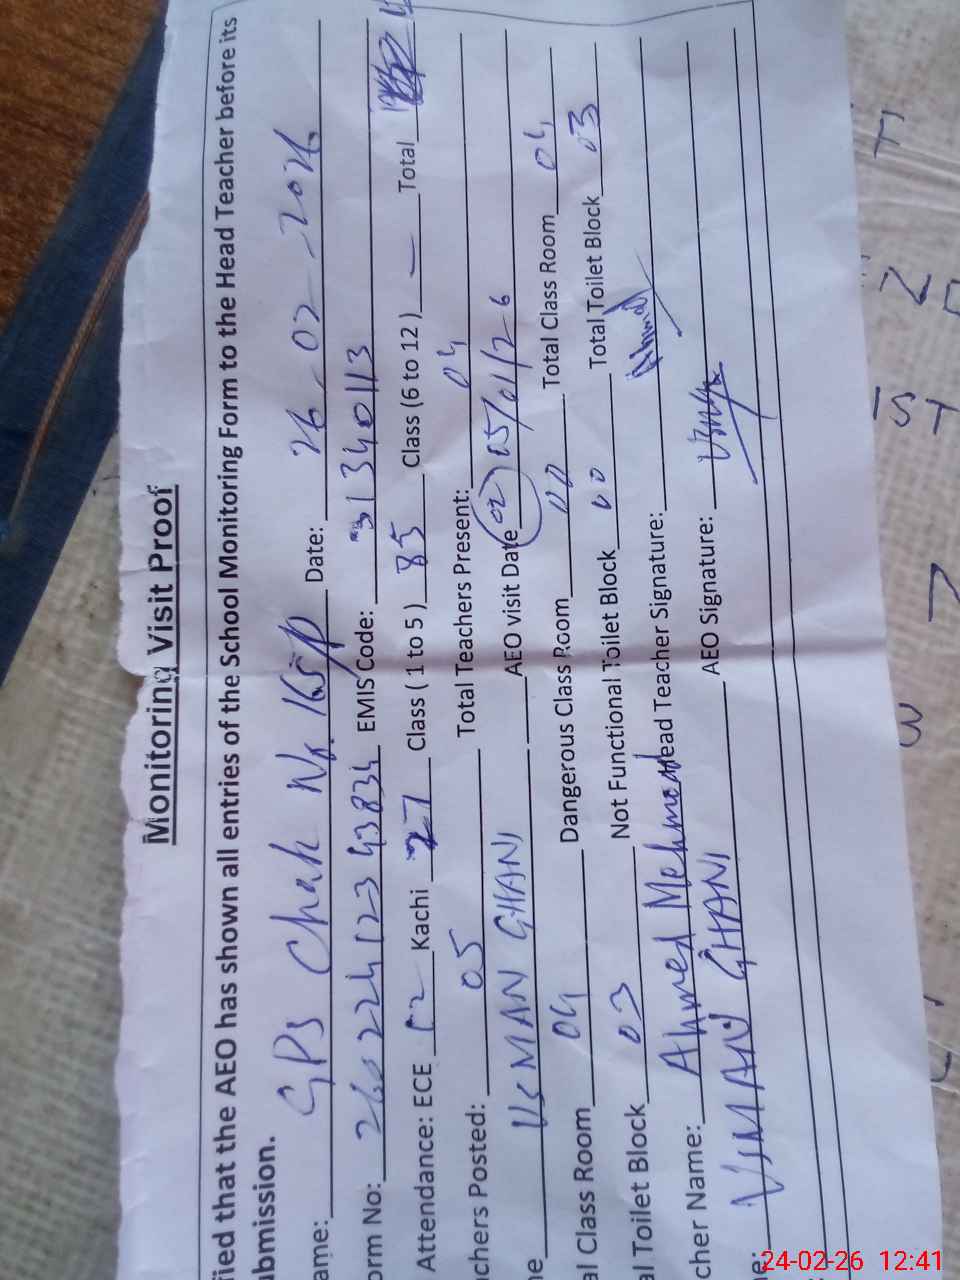 Monitoring Visit Proof
fied that the AEO has shown all entries of the School Monitoring Form to the Head Teacher before its
ubmission.
ame: GPS Chak No. 165/P Date: 26-02-2026
orm No: EMIS Code: 31340113
Attendance: ECE Kachi 27 Class ( 1 to 5 ) 85 Class (6 to 12 ) — Total
achers Posted: 05 Total Teachers Present: 04
ne USMAN GHANI AEO visit Date (02) 05/01/26
al Class Room 04 Dangerous Class Room 00 Total Class Room 04
al Toilet Block 03 Not Functional Toilet Block 00 Total Toilet Block 03
cher Name: Ahmed Mehmood Head Teacher Signature: Ahmed
e: USMAN GHANI AEO Signature:
IST
24-02-26 12:41